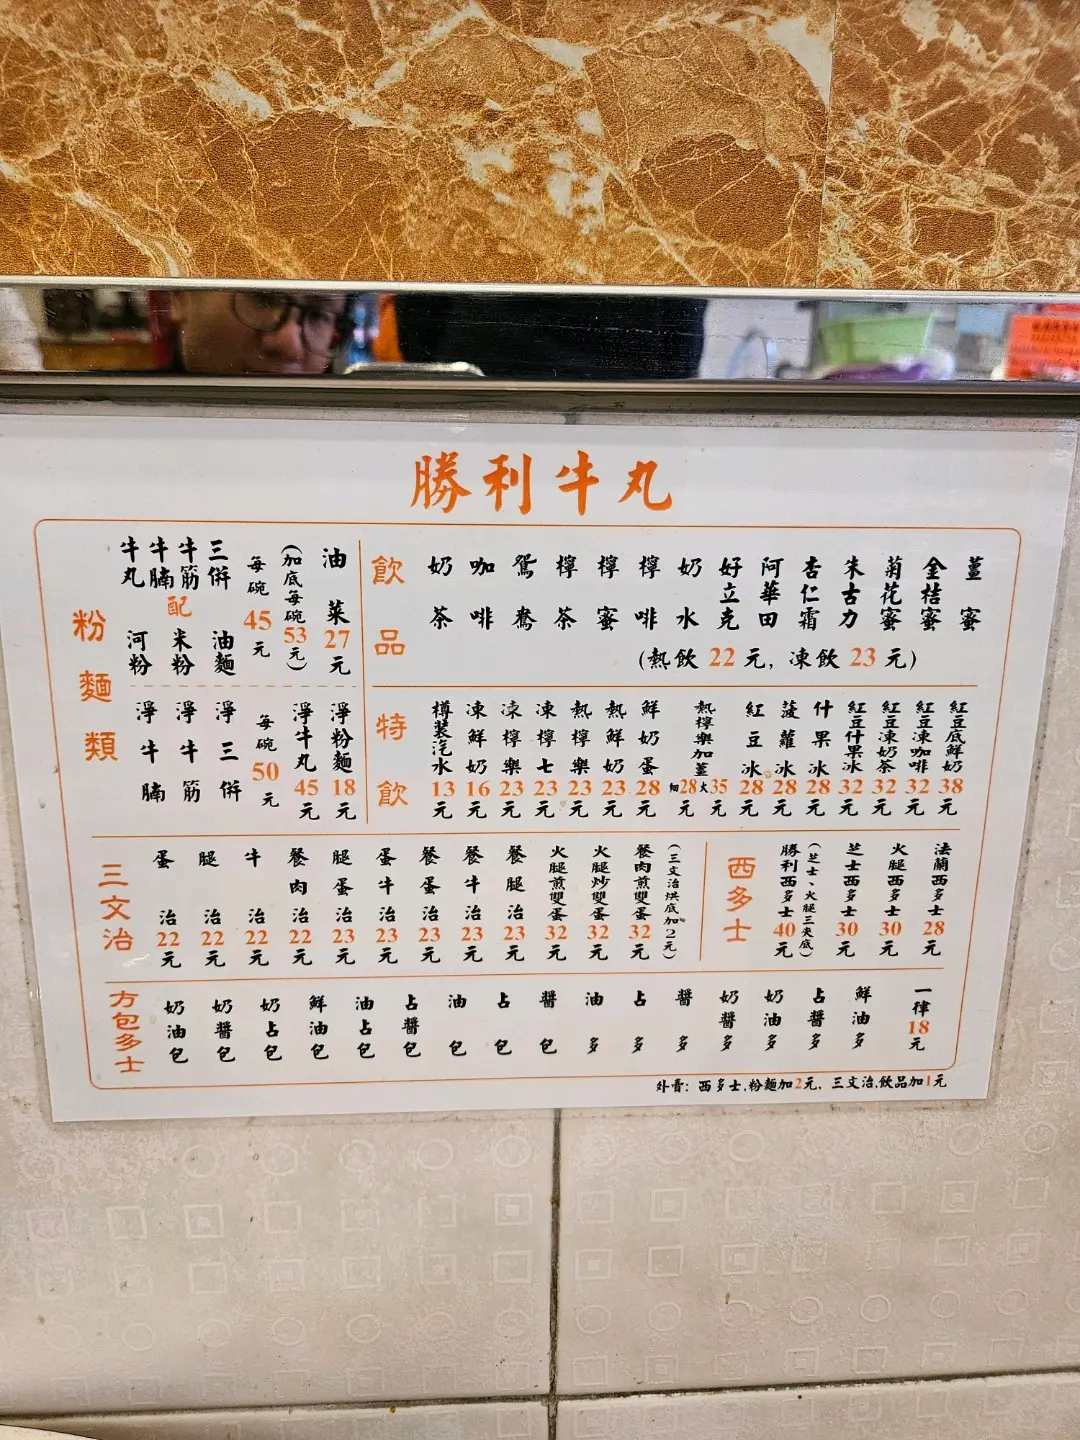 勝利牛丸
粉麵類
牛丸
牛腩
牛筋
三併
配
河粉
米粉
油麵
每碗45元
(加底每碗53元)
油菜27元
淨牛腩
淨牛筋
淨三併
每碗50元
淨牛丸45元
淨粉麵18元
飲品
奶茶
咖啡
鴛鴦
檸茶
檸蜜
檸啡
奶水
好立克
阿華田
杏仁霜
朱古力
菊花蜜
金桔蜜
薑蜜
(熱飲22元,凍飲23元)
特飲
樽裝汽水13元
凍鮮奶16元
凍檸樂23元
凍檸七23元
熱檸樂23元
熱鮮奶23元
鮮奶蛋28元
熱檸樂加薑細28大35元
紅豆冰28元
菠蘿冰28元
什果冰28元
紅豆什果冰32元
紅豆凍奶茶32元
紅豆凍咖啡32元
紅豆底鮮奶38元
三文治
蛋治22元
腿治22元
牛治22元
餐肉治22元
腿蛋治23元
蛋牛治23元
餐蛋治23元
餐牛治23元
餐腿治23元
火腿煎雙蛋32元
火腿炒雙蛋32元
餐肉煎雙蛋32元
(三文治烘底加2元)
西多士
勝利西多士40元
(芝士、火腿三夾底)
芝士西多士30元
火腿西多士30元
法蘭西多士28元
方包多士
奶油包
奶醬包
奶占包
鮮油包
油占包
占醬包
油包
占包
醬包
油多
占多
醬多
奶醬多
奶油多
占醬多
鮮油多
一律18元
外賣:西多士,粉麵加2元,三文治,飲品加1元